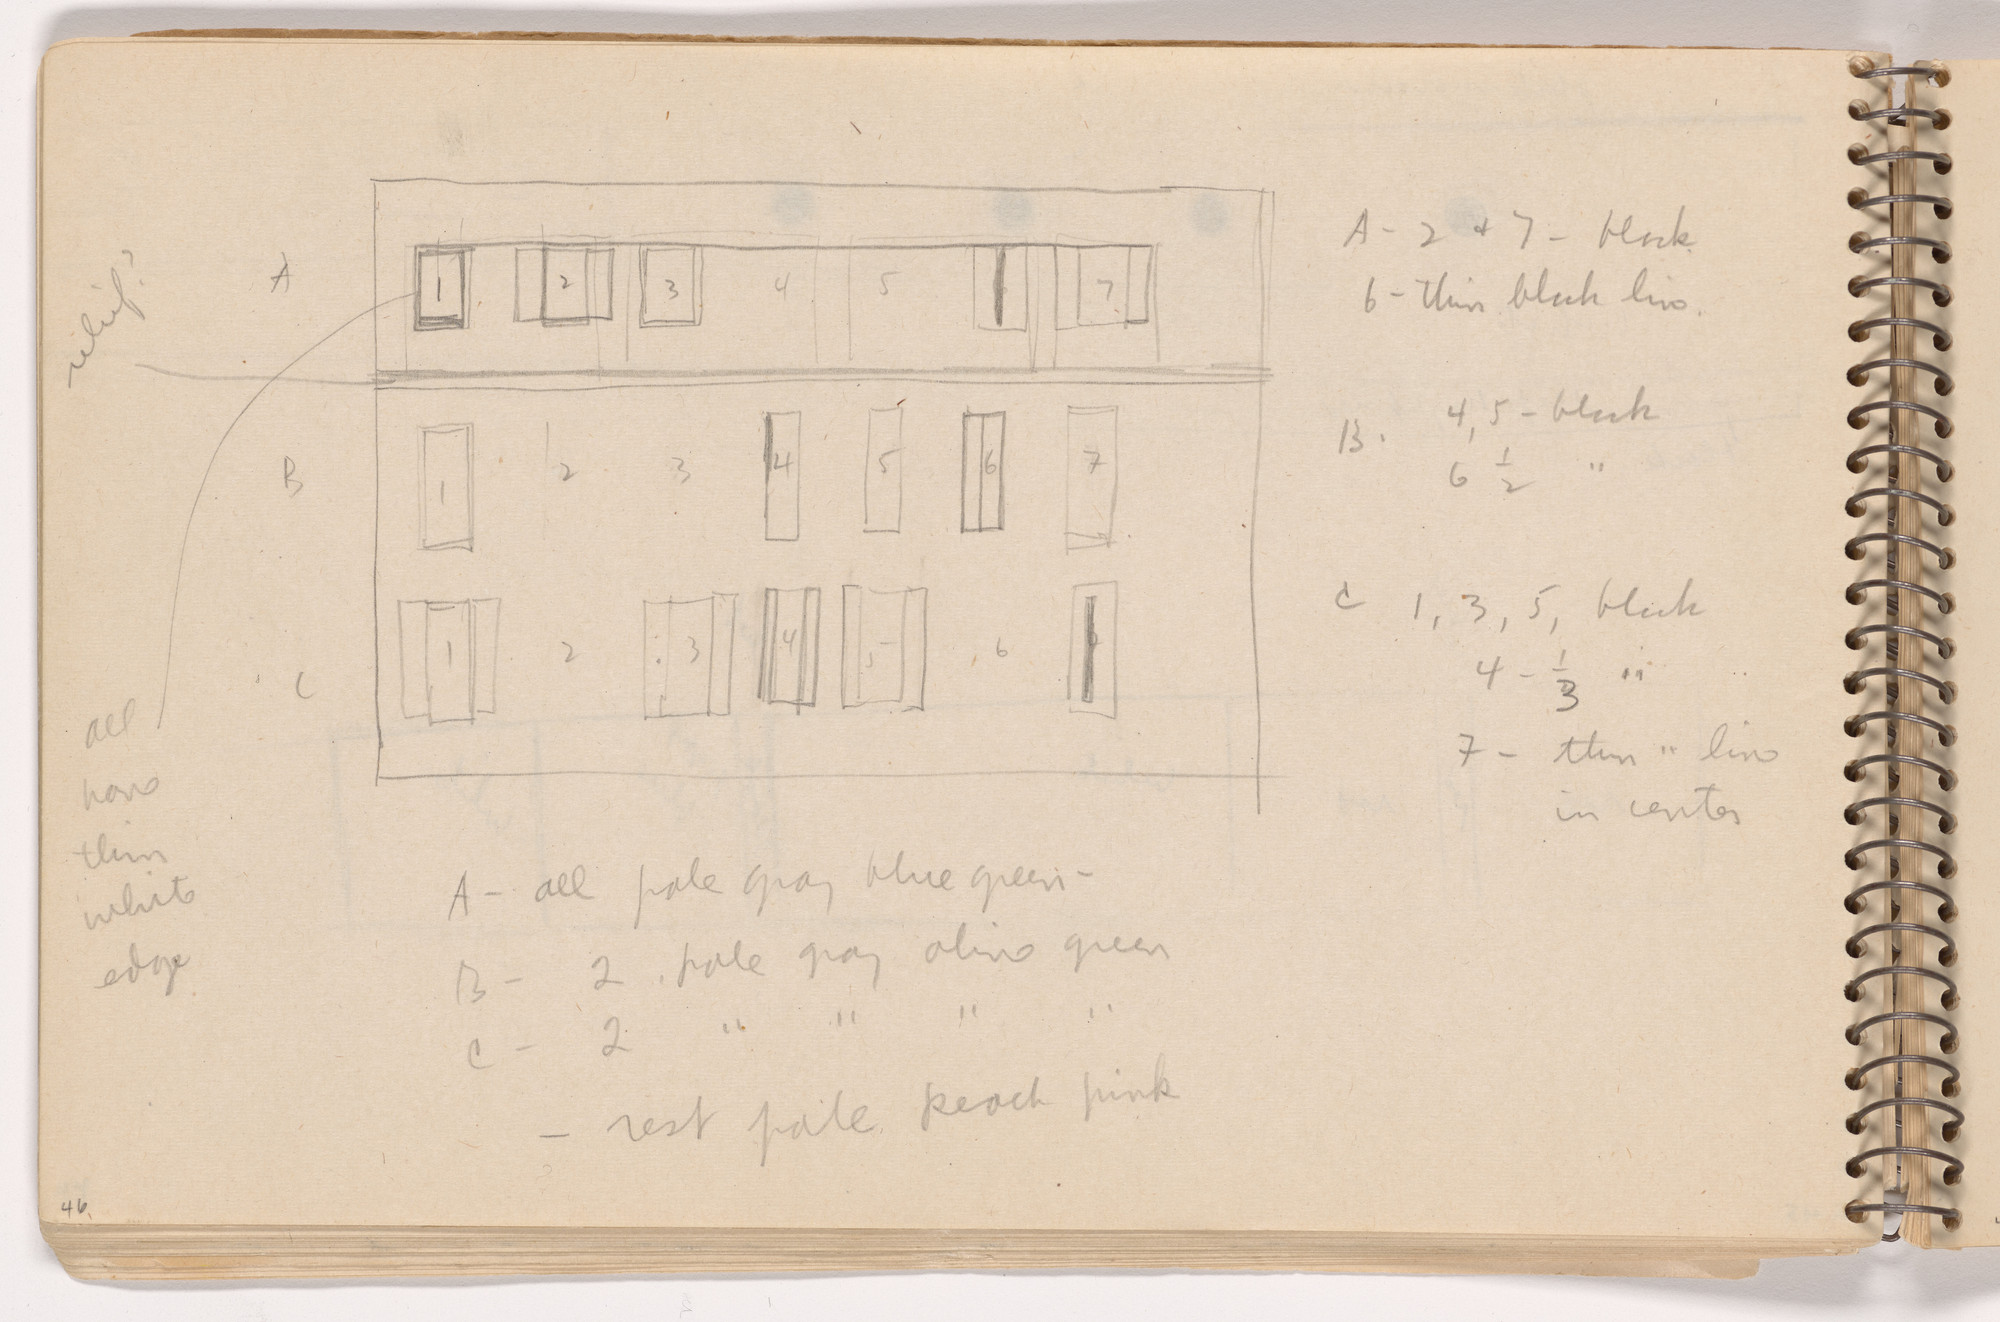 relief?
A 1 2 3 4 5 7
B 1 2 3 4 5 6 7
C 1 2 3 4 5 6
A - 2 + 7 - black
6 - thin black line.
B. 4, 5 - black
6 1/2 "
C 1, 3, 5, black
4 - 1/3 "
7 - thin " line
in center
all
have
thin
white
edge
A - all pale gray blue green -
B - 2 pale gray olive green
C - 2 " " " "
- rest pale peach pink
46.